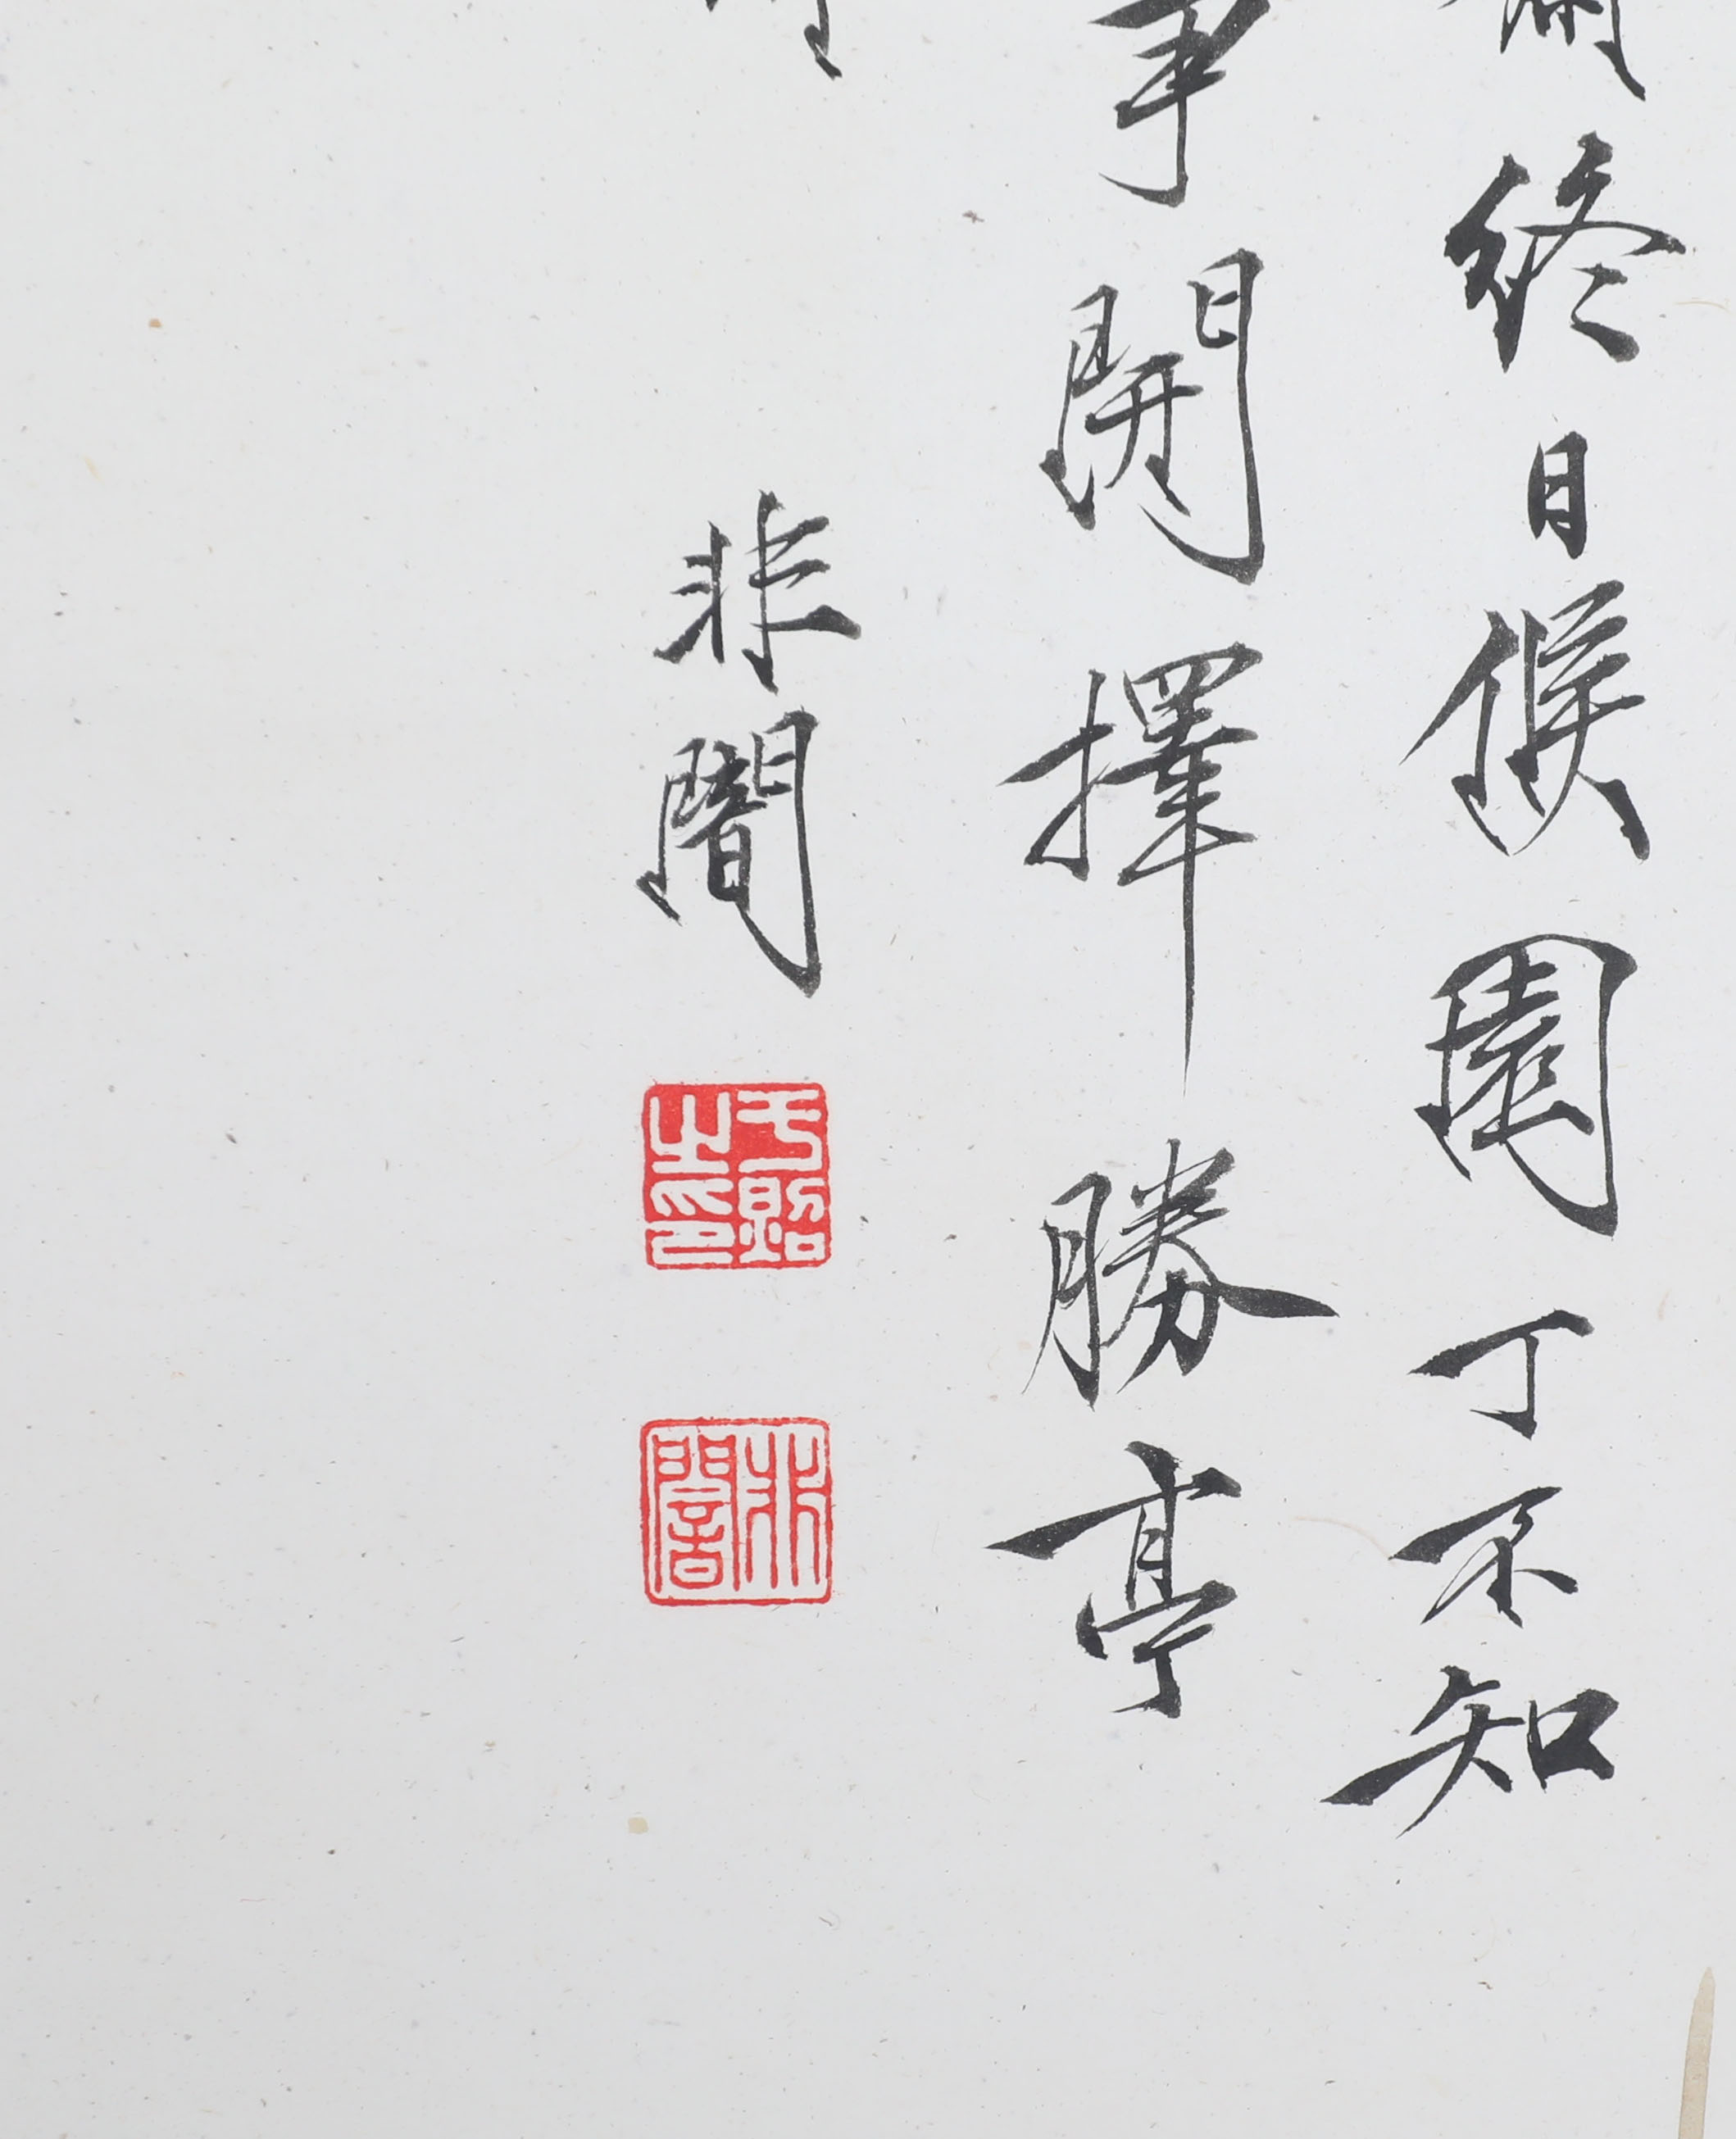 終日候園丁不知
事開擇勝亭
非闇
于照之印
非闇